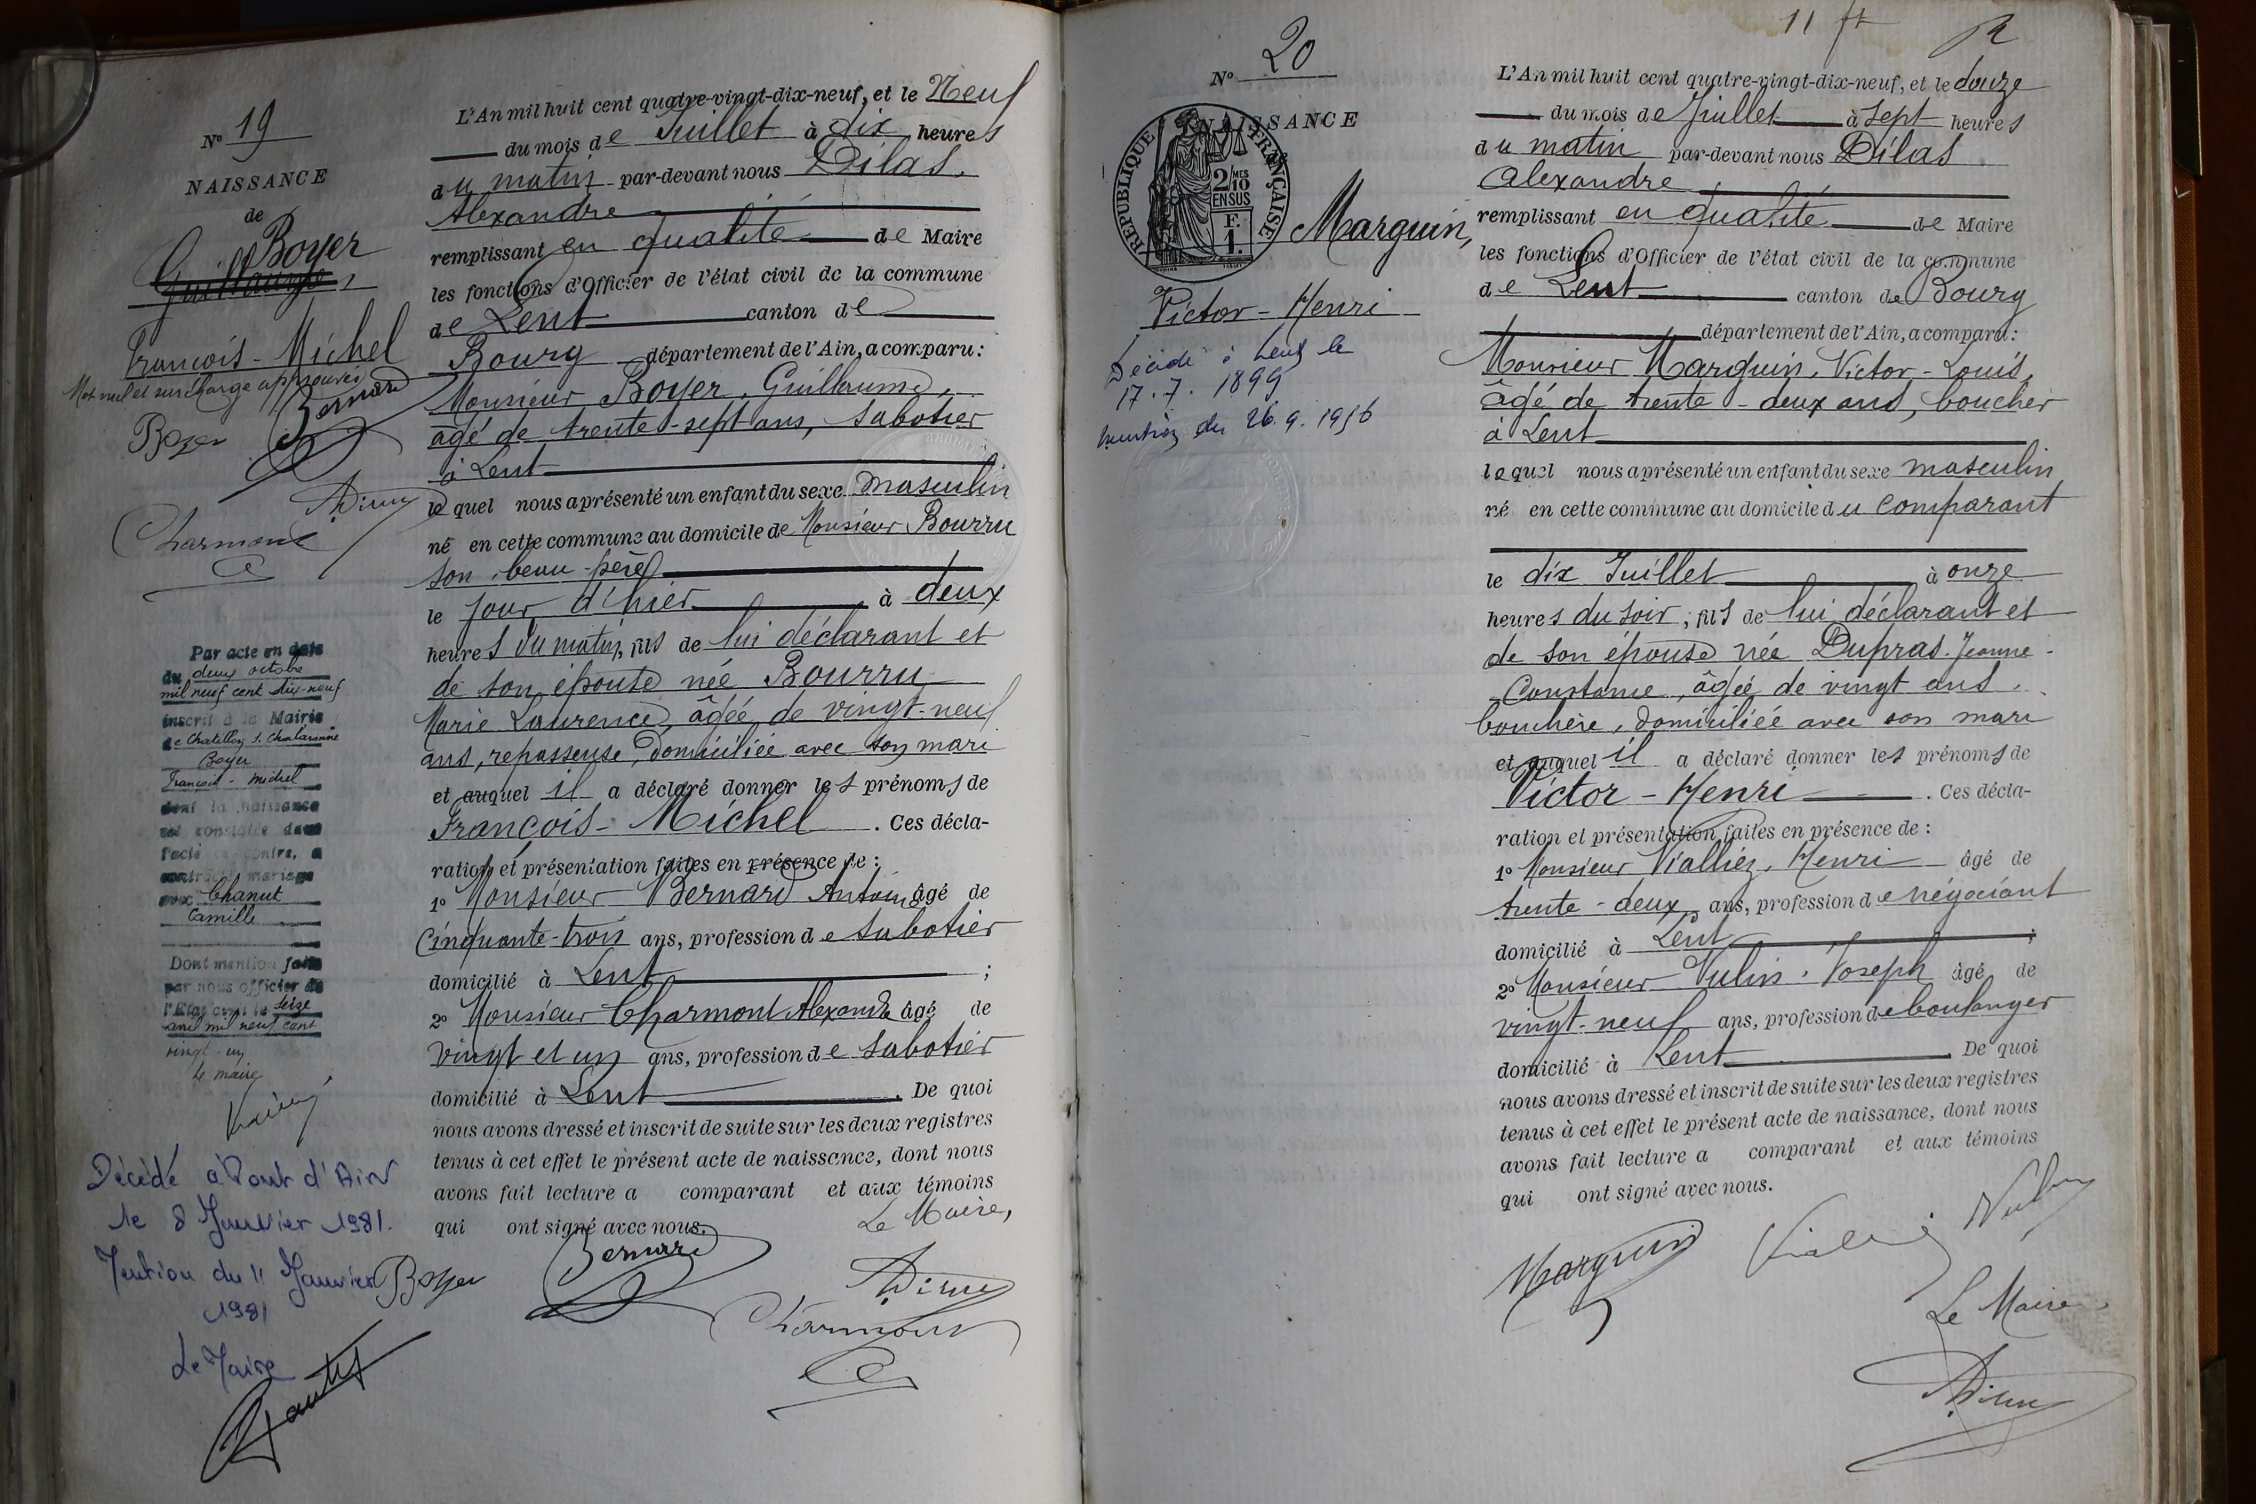 Nº 19
NAISSANCE
de
Boyer
Guillaume,
François-Michel
Mot nul et surcharge approuvés
Bernard
Boyer
Charmont
Par acte en date
du deux octobre
mil neuf cent dix-neuf
inscrit à la Mairie
de Chatillon s. Chalaronne
Boyer
François-Michel
dont la naissance
est constatée dans
l'acte ci-contre, a
contracté mariage
avec Chanut
Camille
Dont mention faite
par nous officier de
l'Etat civil le seize
avril mil neuf cent
vingt-un
Le maire
Décédé à Pont d'Ain
le 8 Janvier 1981.
Mention du 11 Janvier
1981
Le Maire
L'An mil huit cent quatre-vingt-dix-neuf, et le Neuf
du mois de Juillet à dix heures
du matin par-devant nous Dilas,
Alexandre
remplissant en qualité de Maire
les fonctions d'Officier de l'état civil de la commune
de Lent canton de
Bourg département de l'Ain, a comparu:
Monsieur Boyer, Guillaume,
âgé de trente-sept ans, sabotier
à Lent
lequel nous a présenté un enfant du sexe masculin
né en cette commune au domicile de Monsieur Bourru
son beau-père
le jour d'hier à deux
heures du matin, fils de lui déclarant et
de son épouse née Bourru
Marie Laurence, âgée de vingt-neuf
ans, repasseuse, domiciliée avec son mari
et auquel il a déclaré donner les prénoms de
François-Michel. Ces décla-
ration et présentation faites en présence de:
1º Monsieur Bernard Antoine âgé de
cinquante-trois ans, profession de sabotier
domicilié à Lent;
2º Monsieur Charmont Alexandre âgé de
vingt et un ans, profession de sabotier
domicilié à Lent. De quoi
nous avons dressé et inscrit de suite sur les deux registres
tenus à cet effet le présent acte de naissance, dont nous
avons fait lecture a comparant et aux témoins
qui ont signé avec nous.
Le Maire,
Boyer Bernard
Charmont
11 ft
Nº 20
NAISSANCE
RÉPUBLIQUE FRANÇAISE
2 MES
10
EN SUS
F.
1.
Marguin,
Victor-Henri
Décédé à Lent le
17.7.1899
mention du 26.9.1956
L'An mil huit cent quatre-vingt-dix-neuf, et le douze
du mois de Juillet à sept heures
du matin par-devant nous Dilas
Alexandre
remplissant en qualité de Maire
les fonctions d'Officier de l'état civil de la commune
de Lent canton de Bourg
département de l'Ain, a comparu:
Monsieur Marguin, Victor-Louis,
âgé de trente-deux ans, boucher
à Lent
lequel nous a présenté un enfant du sexe masculin
né en cette commune au domicile du comparant
le dix Juillet à onze
heures du soir, fils de lui déclarant et
de son épouse née Dupras Jeanne-
Constance, âgée de vingt ans,
bouchère, domiciliée avec son mari
et auquel il a déclaré donner les prénoms de
Victor-Henri. Ces décla-
ration et présentation faites en présence de:
1º Monsieur Vialliez, Henri âgé de
trente-deux ans, profession de négociant
domicilié à Lent;
2º Monsieur Vulin, Joseph âgé de
vingt-neuf ans, profession de boulanger
domicilié à Lent. De quoi
nous avons dressé et inscrit de suite sur les deux registres
tenus à cet effet le présent acte de naissance, dont nous
avons fait lecture a comparant et aux témoins
qui ont signé avec nous.
Marguin
Le Maire,